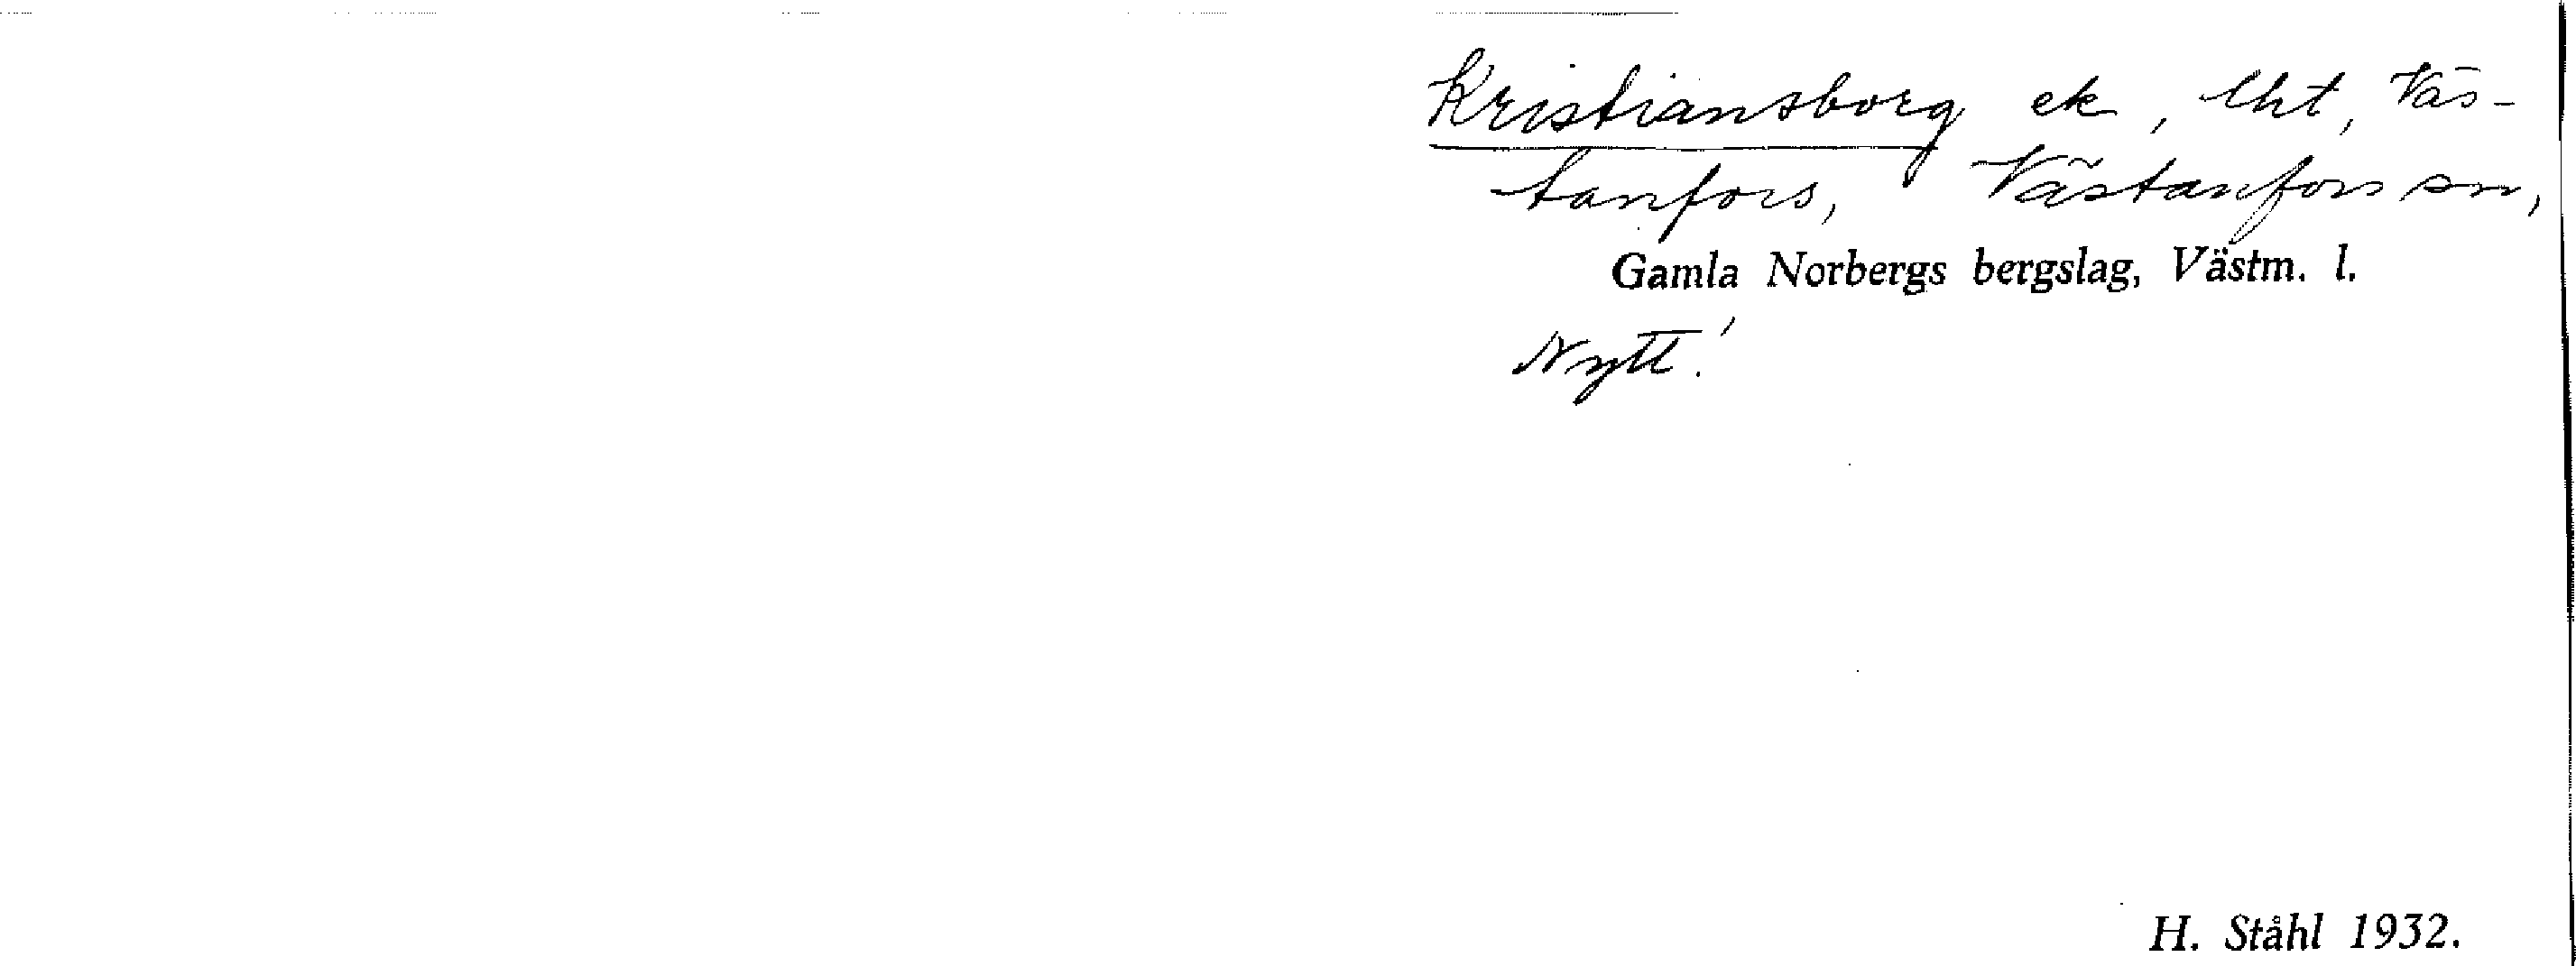 Kristiansborg ek, lht, Väs-
tanfors, Västanfors sn,
Gamla Norbergs bergslag, Västm. l.
Nytt!
H. Ståhl 1932.